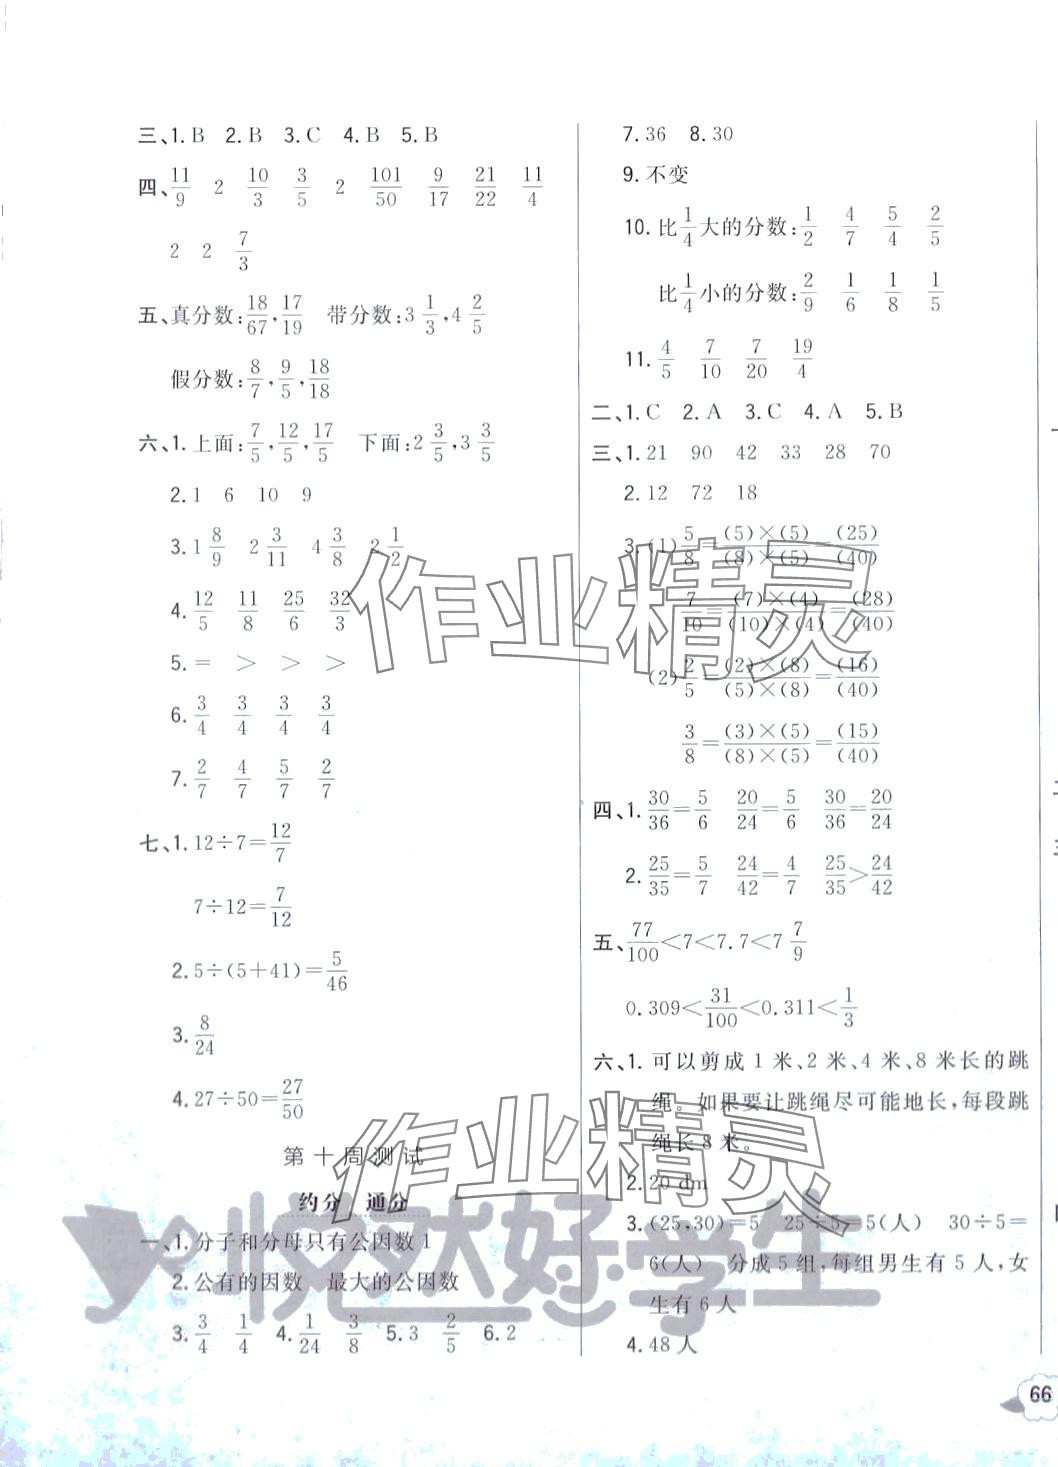 三、1. B 2. B 3. C 4. B 5. B
四、11/9 2 10/3 3/5 2 101/50 9/17 21/22 11/4
2 2 7/3
五、真分数:18/67,17/19 带分数:3 1/3,4 2/5
假分数:8/7,9/5,18/18
六、1. 上面:7/5,12/5,17/5 下面:2 3/5,3 3/5
2. 1 6 10 9
3. 1 8/9 2 3/11 4 3/8 2 1/2
4. 12/5 11/8 25/6 32/3
5. = > > >
6. 3/4 3/4 3/4 3/4
7. 2/7 4/7 5/7 2/7
七、1. 12÷7=12/7
7÷12=7/12
2. 5÷(5+41)=5/46
3. 8/24
4. 27÷50=27/50
第十周测试
约分 通分
一、1. 分子和分母只有公因数1
2. 公有的因数 最大的公因数
3. 3/4 1/4 4. 1/24 3/8 5. 3 2/5 6. 2
7. 36 8. 30
9. 不变
10. 比1/4大的分数:1/2 4/7 5/4 2/5
比1/4小的分数:2/9 1/6 1/8 1/5
11. 4/5 7/10 7/20 19/4
二、1. C 2. A 3. C 4. A 5. B
三、1. 21 90 42 33 28 70
2. 12 72 18
3. (1) 5/8=(5)×(5)/(8)×(5)=(25)/(40)
7/10=(7)×(4)/(10)×(4)=(28)/(40)
(2) 2/5=(2)×(8)/(5)×(8)=(16)/(40)
3/8=(3)×(5)/(8)×(5)=(15)/(40)
四、1. 30/36=5/6 20/24=5/6 30/36=20/24
2. 25/35=5/7 24/42=4/7 25/35>24/42
五、77/100<7<7.7<7 7/9
0.309<31/100<0.311<1/3
六、1. 可以剪成1米、2米、4米、8米长的跳
绳。如果要让跳绳尽可能地长,每段跳
绳长8米。
2. 20 dm
3. (25,30)=5 25÷5=5(人) 30÷5=
6(人) 分成5组,每组男生有5人,女
生有6人
4. 48人
66
作业精灵
作业精灵
悦然好学生